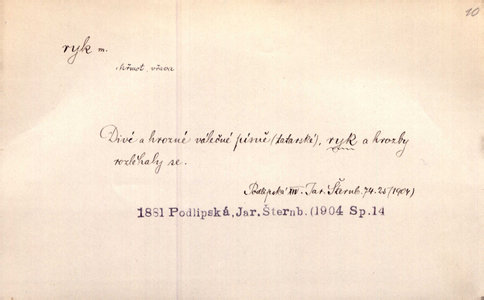 10
ryk m.
hřmot, vřava
Divé a hrozné válečné písně (tatarské), ryk a hrozby
rozléhaly se.
Podlipská XIV. Jar. Šternb. 74. 25 (1904)
1881 Podlipská, Jar. Šternb. (1904 Sp.14